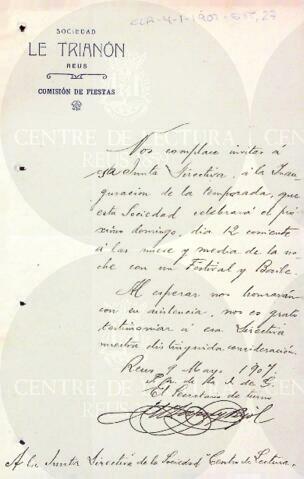 CLA-4-1-1907-
SOCIEDAD
LE TRIANÓN
REUS
COMISIÓN DE FIESTAS
Nos complace invitar á
esa Junta Directiva, á la Inau-
guración de la temporada, que
esta Sociedad celebrará el pró-
ximo domingo, dia 12 corriente
á las nueve y media de la no-
che con un Festival y Baile.
Al esperar nos honrarán
con su asistencia, nos es grato
testimoniar á esa Directiva
nuestra distinguida consideración.
Reus 9 Mayo 1907.
El Secretario de turno
A la Junta Directiva de la Sociedad "Centro de Lectura".
CENTRE DE LECTURA
REUS